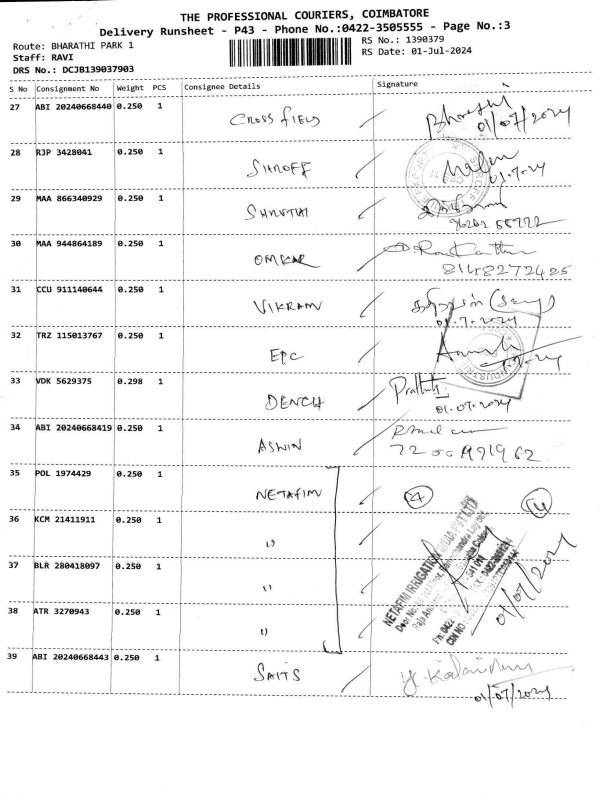 THE PROFESSIONAL COURIERS, COIMBATORE
Delivery Runsheet - P43 - Phone No.:0422-3505555 - Page No.:3
Route: BHARATHI PARK 1
RS No.: 1390379
Staff: RAVI
RS Date: 01-Jul-2024
DRS No.: DCJB139037903
S No Consignment No Weight PCS Consignee Details Signature
27 ABI 20240668440 0.250 1 CROSS FIELD
01/07/2024
28 RJP 3428041 0.250 1 SHROFF
01-7-24
29 MAA 866340929 0.250 1 SHRUTHI
30 MAA 944864189 0.250 1 OMKAR
8148272485
31 CCU 911140644 0.250 1 VIKRAM
01.7.2024
32 TRZ 115013767 0.250 1 EPC
33 VDK 5629375 0.298 1 DENCH
01.07.2024
34 ABI 20240668419 0.250 1 ASWIN
35 POL 1974429 0.250 1 NETAFIM
36 KCM 21411911 0.250 1 ''
37 BLR 280418097 0.250 1 ''
38 ATR 3270943 0.250 1 ''
NETAFIM IRRIGATION INDIA PVT LTD
01/07/2024
39 ABI 20240668443 0.250 1 SAITS
01/07/2024